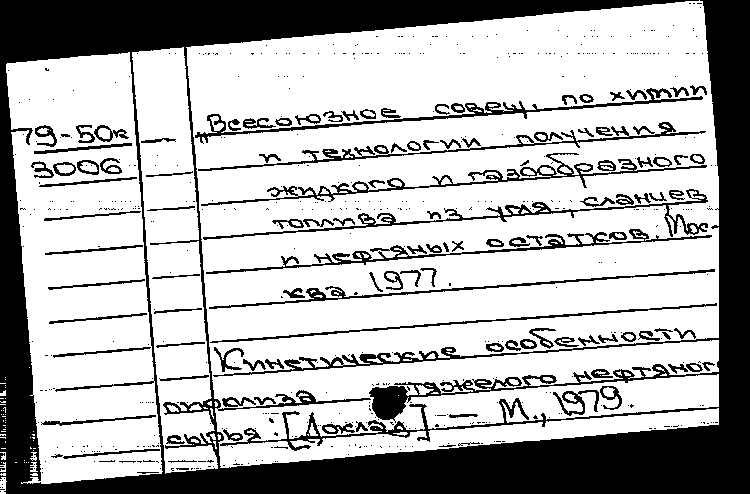 79-50к
3006
— „Всесоюзное совещ. по химии
и технологии получения
жидкого и газообразного
топлива из угля, сланцев
и нефтяных остатков. Мос-
ква. 1977.
Кинетические особенности
пиролиза тяжелого нефтяного
сырья: [Доклад]. — М., 1979.